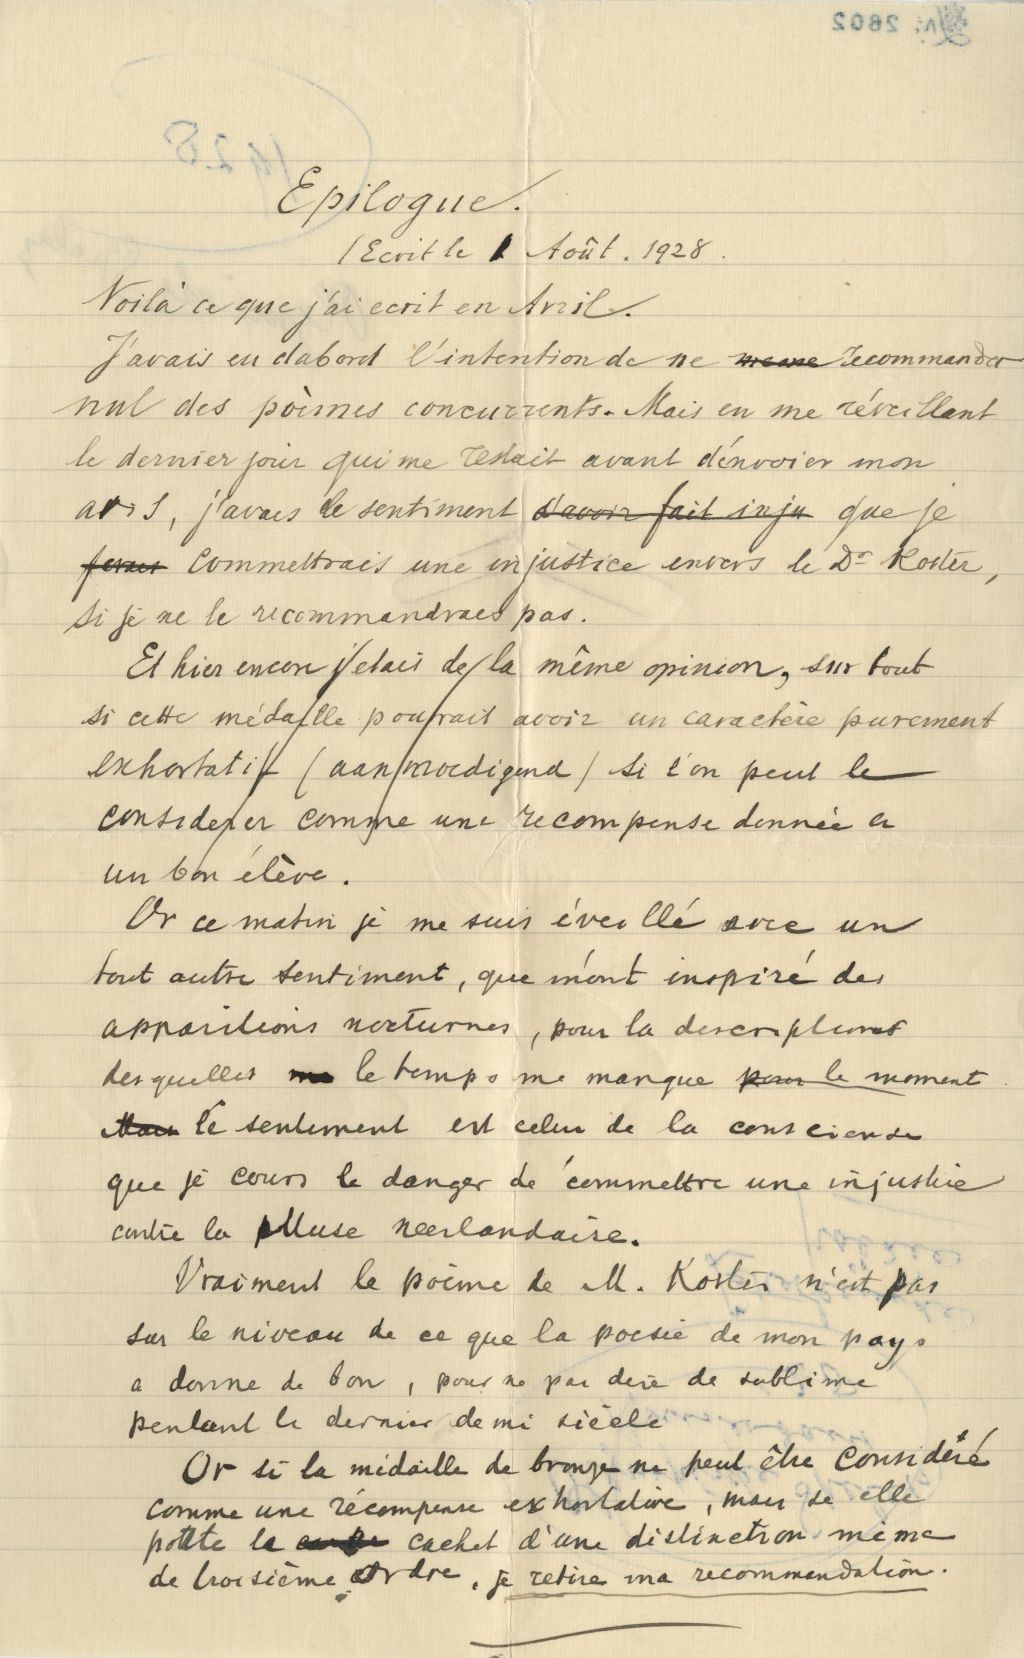 No: 2602
1928
Epilogue.
/Ecrit le 1 Août. 1928.
Voilà ce que j'ai ecrit en Avril.
J'avais eu dabord l'intention de ne recommander
nul des poèmes concurrents. Mais en me réveillant
le dernier jour qui me restait avant d'énvoier mon
avis, j'avais le sentiment d'avoir fait inju que je
ferais commettrais une injustice envers le Dr Koster,
si je ne le recommandrais pas.
Et hier encore j'etais de la même opinion, surtout
si cette médaille pourrait avoir un caractère purement
exhortatif (aanmoedigend) si l'on peut le
considerer comme une recompense donnée a
un bon élève.
Or ce matin je me suis éveillé avec un
tout autre sentiment, que m'ont inspiré des
apparitions nocturnes, pour la description
desquelles le temps me manque pour le moment
Mais le sentiment est celui de la consciense
que je cours le danger de commettre une injustice
contre la Muse neerlandaise.
Vraiment le poème de M. Koster n'est pas
sur le niveau de ce que la poesie de mon pays
a donne de bon, pour ne pas dire de sublime
pendant le dernier demi siècle
Or si la médaille de bronze ne peut être considéré
comme une récompense exhortative, mais se elle
porte le cachet d'une distinction même
de troisième Ordre, je retire ma recommendation.